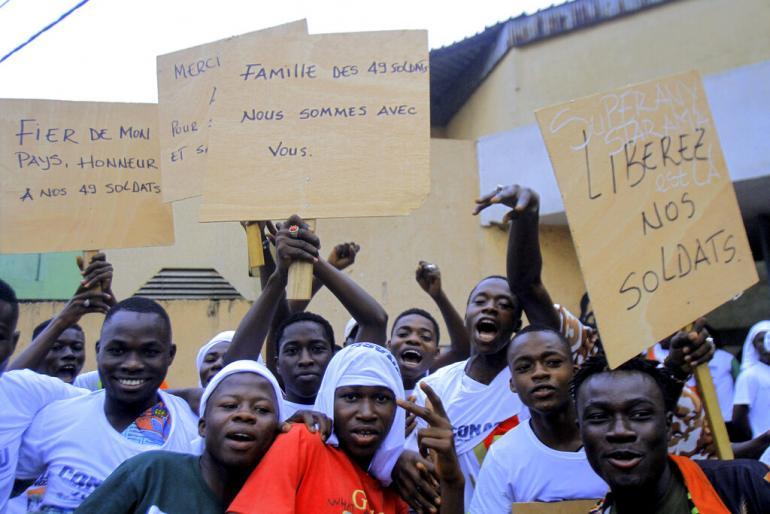 FIER DE MON
PAYS, HONNEUR
A NOS 49 SOLDATS
MERCI
POUR
ET
FAMILLE DES 49 SOLDATS
NOUS SOMMES AVEC
VOUS.
LIBEREZ
NOS
SOLDATS.